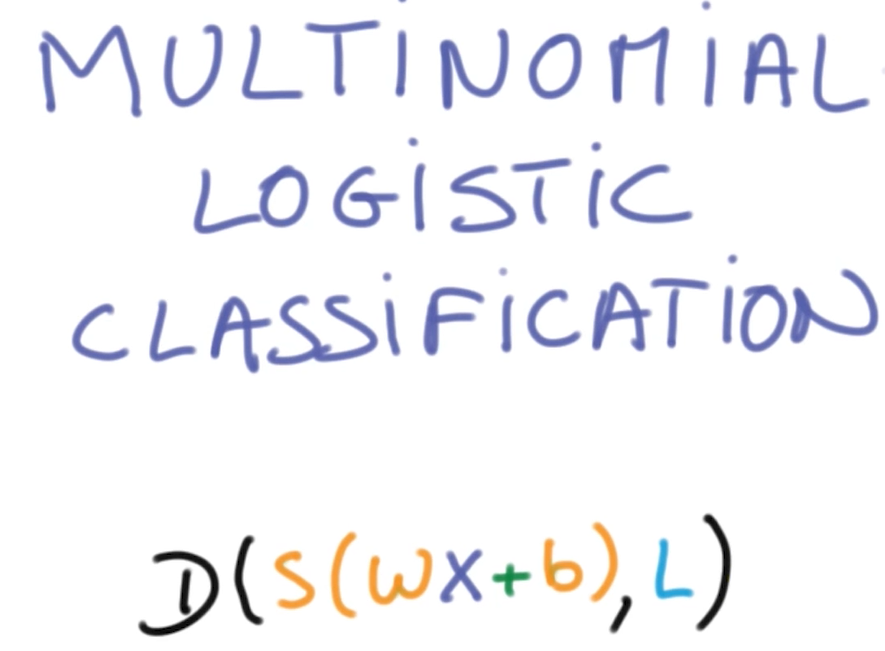 MULTiNOMiAL
LOGiSTiC
CLASSiFiCATiON
D(S(wx+b),L)